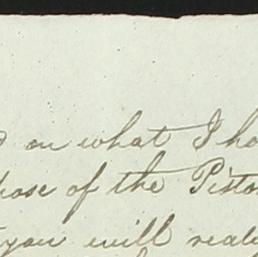 on what I ho
pose of the Pisto
you will read